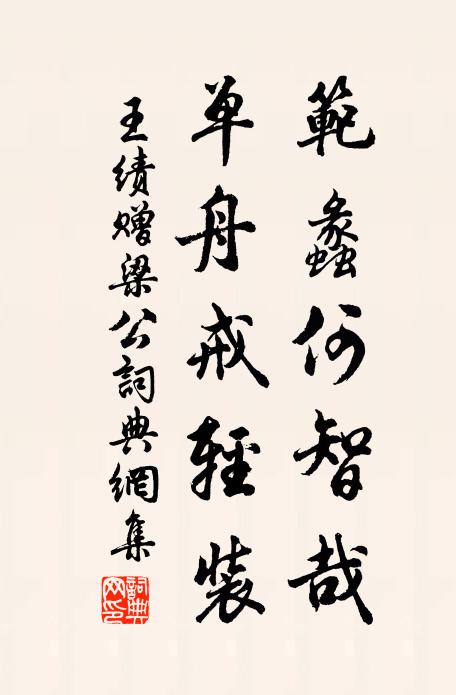 範蠡何智哉
单舟戒輕裝
王績赠梁公詞典網集
詞典网印